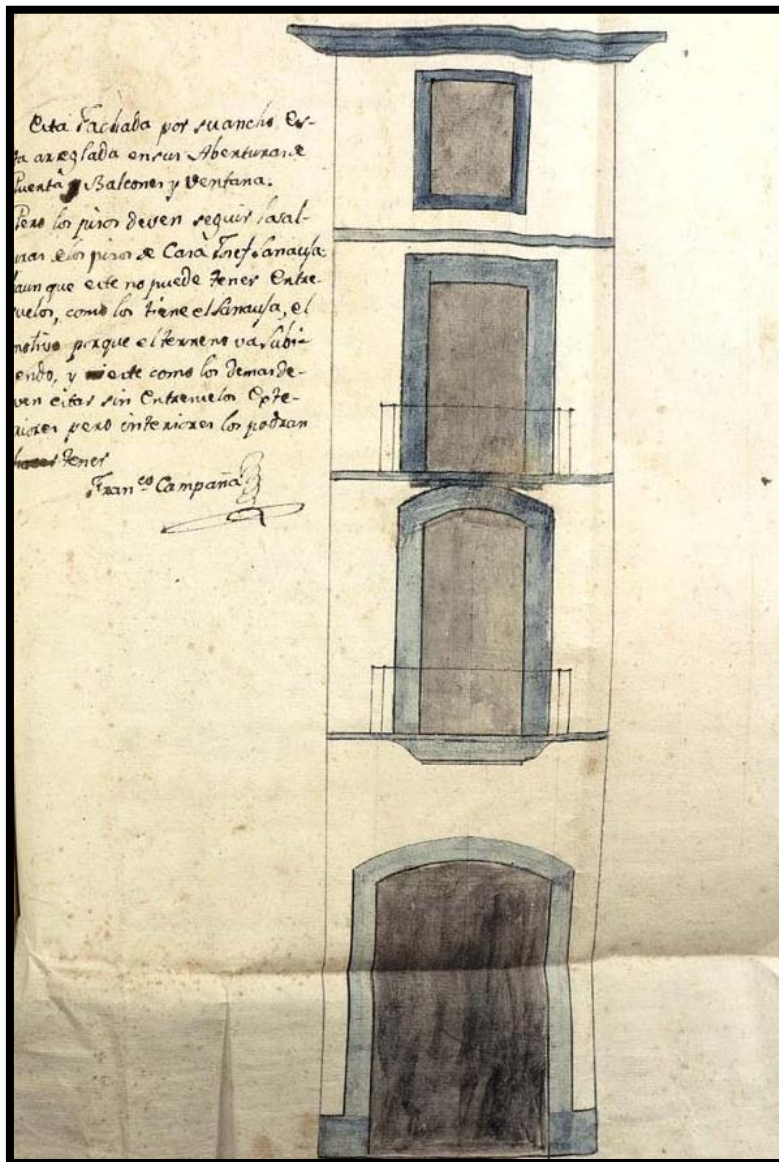 Esta Fachada por su ancho es-
ta arreglada en sus Aberturas de
Puerta y Balcones y Ventana.
Pero los pisos deven seguir las al-
turas de los pisos de Casa Josef Sanaufa
aunque este no puede tener Entre-
suelos, como los tiene el Sanaufa, el
motivo porque el terreno va subi-
endo, y este como los demas de-
ven estar sin Entresuelos Exte-
riores pero interiores los podran
tener
Fran.co Campaña